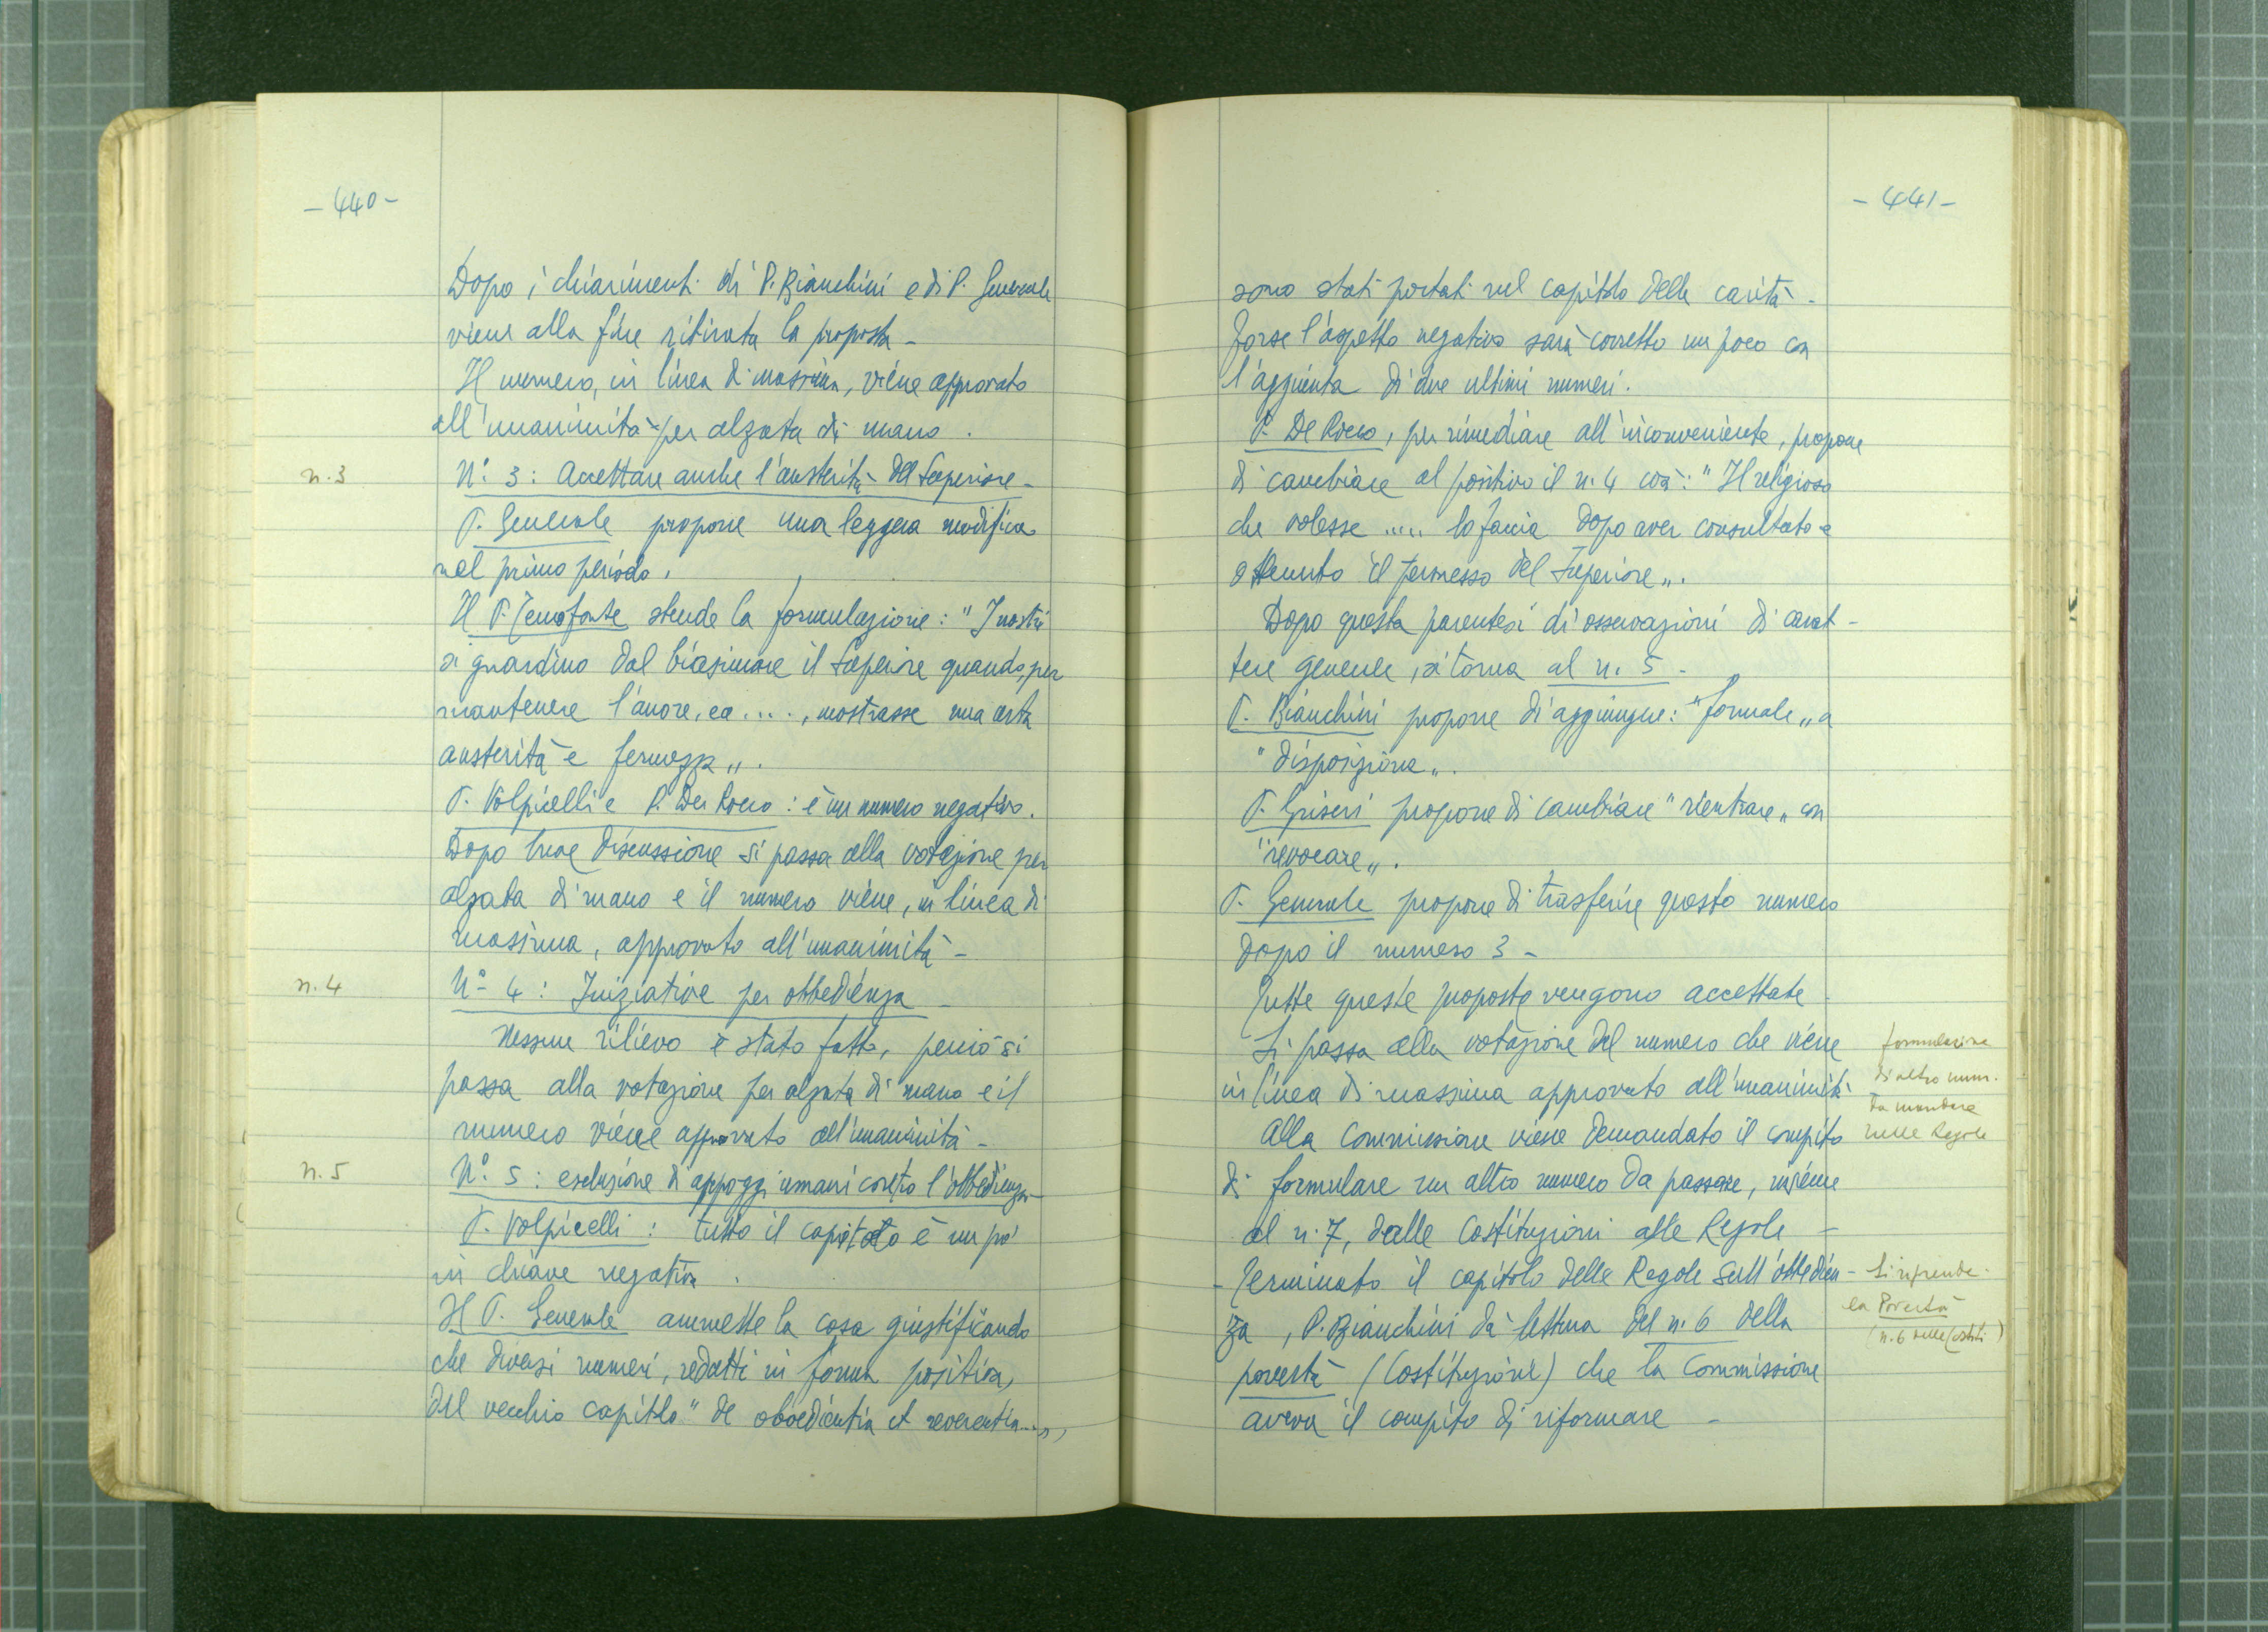 - 440 -
Dopo i chiarimenti di P. Bianchini e di P. Generale
viene alla fine ritirata la proposta -
Il numero, in linea di massima, viene approvato
all'unanimità per alzata di mano.
n. 3
N° 3: Accettare anche l'austerità del Superiore -
P. Generale propone una leggera modifica
nel primo periodo.
Il P. Tenofonte stende la formulazione: "I nostri
si guardino dal biasimare il Superiore quando, per
mantenere l'amore, ec ...., mostrasse una certa
austerità e fermezza„.
P. Volpicelli e P. De Rocco: è un numero negativo.
Dopo breve discussione si passa alla votazione per
alzata di mano e il numero viene, in linea di
massima, approvato all'unanimità -
n. 4
N° 4: Iniziative per obbedienza -
Nessun rilievo è stato fatto, perciò si
passa alla votazione per alzata di mano e il
numero viene approvato all'unanimità -
n. 5
N° 5: esclusione di appoggi umani contro l'obbedienza -
P. Volpicelli: tutto il capitolo è un po'
in chiave negativa.
Il P. Generale ammette la cosa giustificando
che diversi numeri, redatti in forma positiva,
del vecchio capitolo "de oboedientia et reverentia...„,
- 441 -
sono stati portati nel capitolo della carità -
Forse l'aspetto negativo sarà corretto un poco con
l'aggiunta di due ultimi numeri.
P. De Rocco, per rimediare all'inconveniente, propone
di cambiare al positivo il n. 4 così: "Il religioso
che volesse ..... lo faccia dopo aver consultato e
ottenuto il permesso del Superiore„.
Dopo questa parentesi di osservazioni di carat-
tere generale, si torna al n. 5 -
P. Bianchini propone di aggiungere: "formale„ a
"disposizione„.
P. Griseri propone di cambiare "rientrare„ con
"revocare„.
P. Generale propone di trasferire questo numero
dopo il numero 3 -
Tutte queste proposte vengono accettate -
Si passa alla votazione del numero che viene
in linea di massima approvato all'unanimità
Alla Commissione viene demandato il compito
di formulare un altro numero da passare, insieme
al n. 7, dalle Costituzioni alle Regole -
formulazione
di altro num.
da mandare
nelle Regole
- Terminato il capitolo delle Regole sull'obbedien-
za, P. Bianchini dà lettura del n. 6 della
povertà (Costituzioni) che la Commissione
aveva il compito di riformare -
Si riprende
la Povertà
(n. 6 delle Costit.)